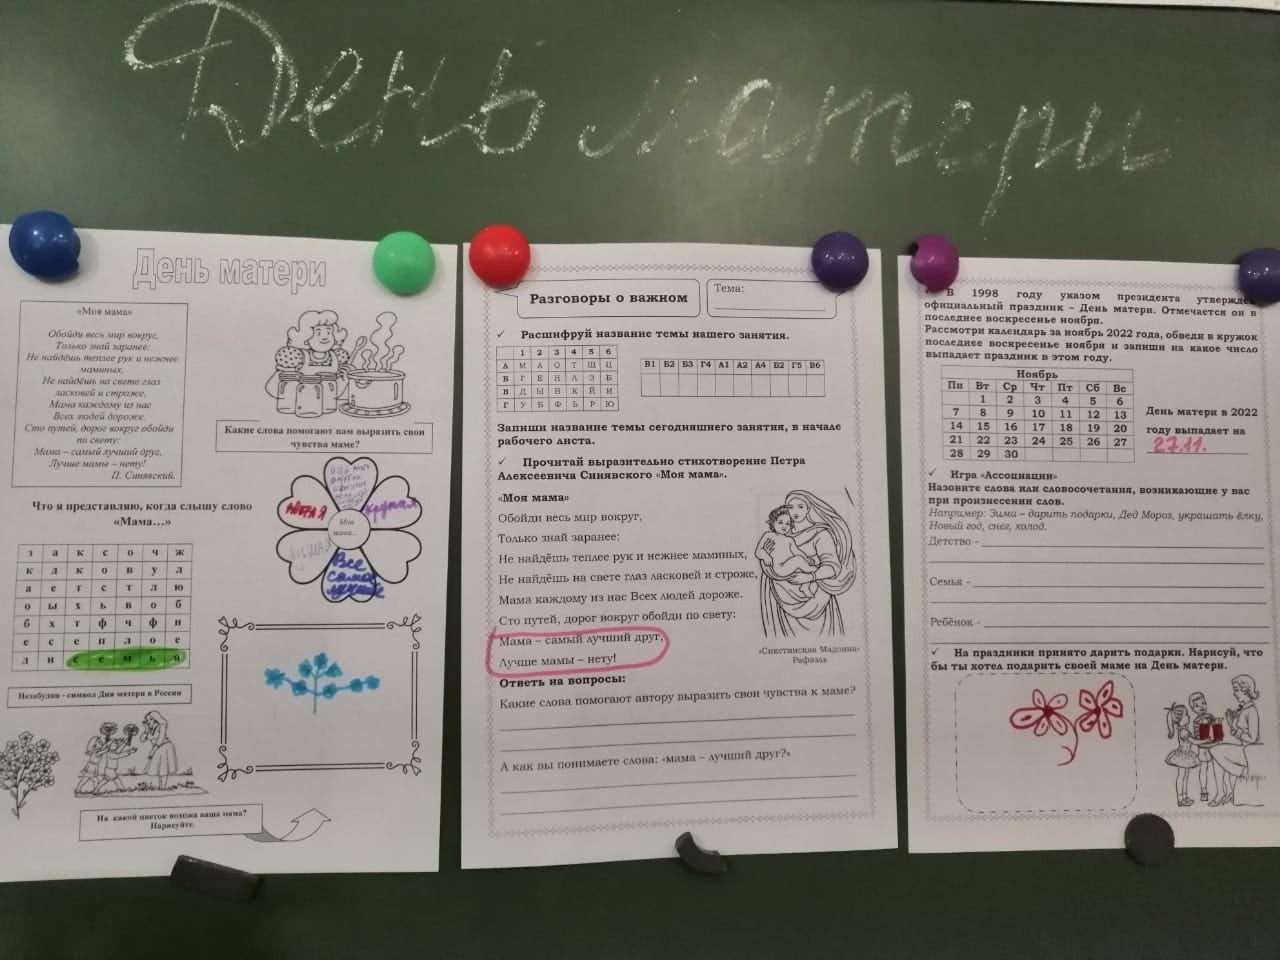 День матери
День матери
«Моя мама»
Обойди весь мир вокруг,
Только знай заранее:
Не найдёшь теплее рук и нежнее
маминых,
Не найдёшь на свете глаз
ласковей и строже,
Мама каждому из нас
Всех людей дороже.
Сто путей, дорог вокруг обойди
по свету:
Мама – самый лучший друг,
Лучше мамы – нету!
П. Синявский.
Какие слова помогают вам выразить свои
чувства маме?
Что я представляю, когда слышу слово
«Мама…»
з а к с о ч ж
к д к о в у л
а е т с т л ю
о ы х ь в о б
б х т ф ч ф и
е с е п л о е
л и с е м ь я
Моя
мама...
Все
самое
лучшее
Незабудка - символ Дня матери в России
На какой цветок похожа ваша мама?
Нарисуйте.
Разговоры о важном
Тема:
✓ Расшифруй название темы нашего занятия.
1 2 3 4 5 6
А М А О Т Щ Ц
Б Г Е Н Л З Б
В Д Ы В К Й И
Г У Б Ф Ь Р Ю
В1 Б2 Б3 Г4 А1 А2 А4 Б2 Г5 В6
Запиши название темы сегодняшнего занятия, в начале
рабочего листа.
✓ Прочитай выразительно стихотворение Петра
Алексеевича Синявского «Моя мама».
«Моя мама»
Обойди весь мир вокруг,
Только знай заранее:
Не найдёшь теплее рук и нежнее маминых,
Не найдёшь на свете глаз ласковей и строже,
Мама каждому из нас Всех людей дороже.
Сто путей, дорог вокруг обойди по свету:
Мама – самый лучший друг,
Лучше мамы – нету!
«Сикстинская Мадонна»
Рафаэль
Ответь на вопросы:
Какие слова помогают автору выразить свои чувства к маме?
А как вы понимаете слова: «мама – лучший друг?»
В 1998 году указом президента утвержден
официальный праздник – День матери. Отмечается он в
последнее воскресенье ноября.
Рассмотри календарь за ноябрь 2022 года, обведи в кружок
последнее воскресенье ноября и запиши на какое число
выпадает праздник в этом году.
Ноябрь
Пн Вт Ср Чт Пт Сб Вс
1 2 3 4 5 6
7 8 9 10 11 12 13
14 15 16 17 18 19 20
21 22 23 24 25 26 27
28 29 30
День матери в 2022
году выпадает на
27.11.
✓ Игра «Ассоциации»
Назовите слова или словосочетания, возникающие у вас
при произнесении слов.
Например: Зима – дарить подарки, Дед Мороз, украшать ёлку,
Новый год, снег, холод.
Детство -
Семья -
Ребёнок -
✓ На праздники принято дарить подарки. Нарисуй, что
бы ты хотел подарить своей маме на День матери.